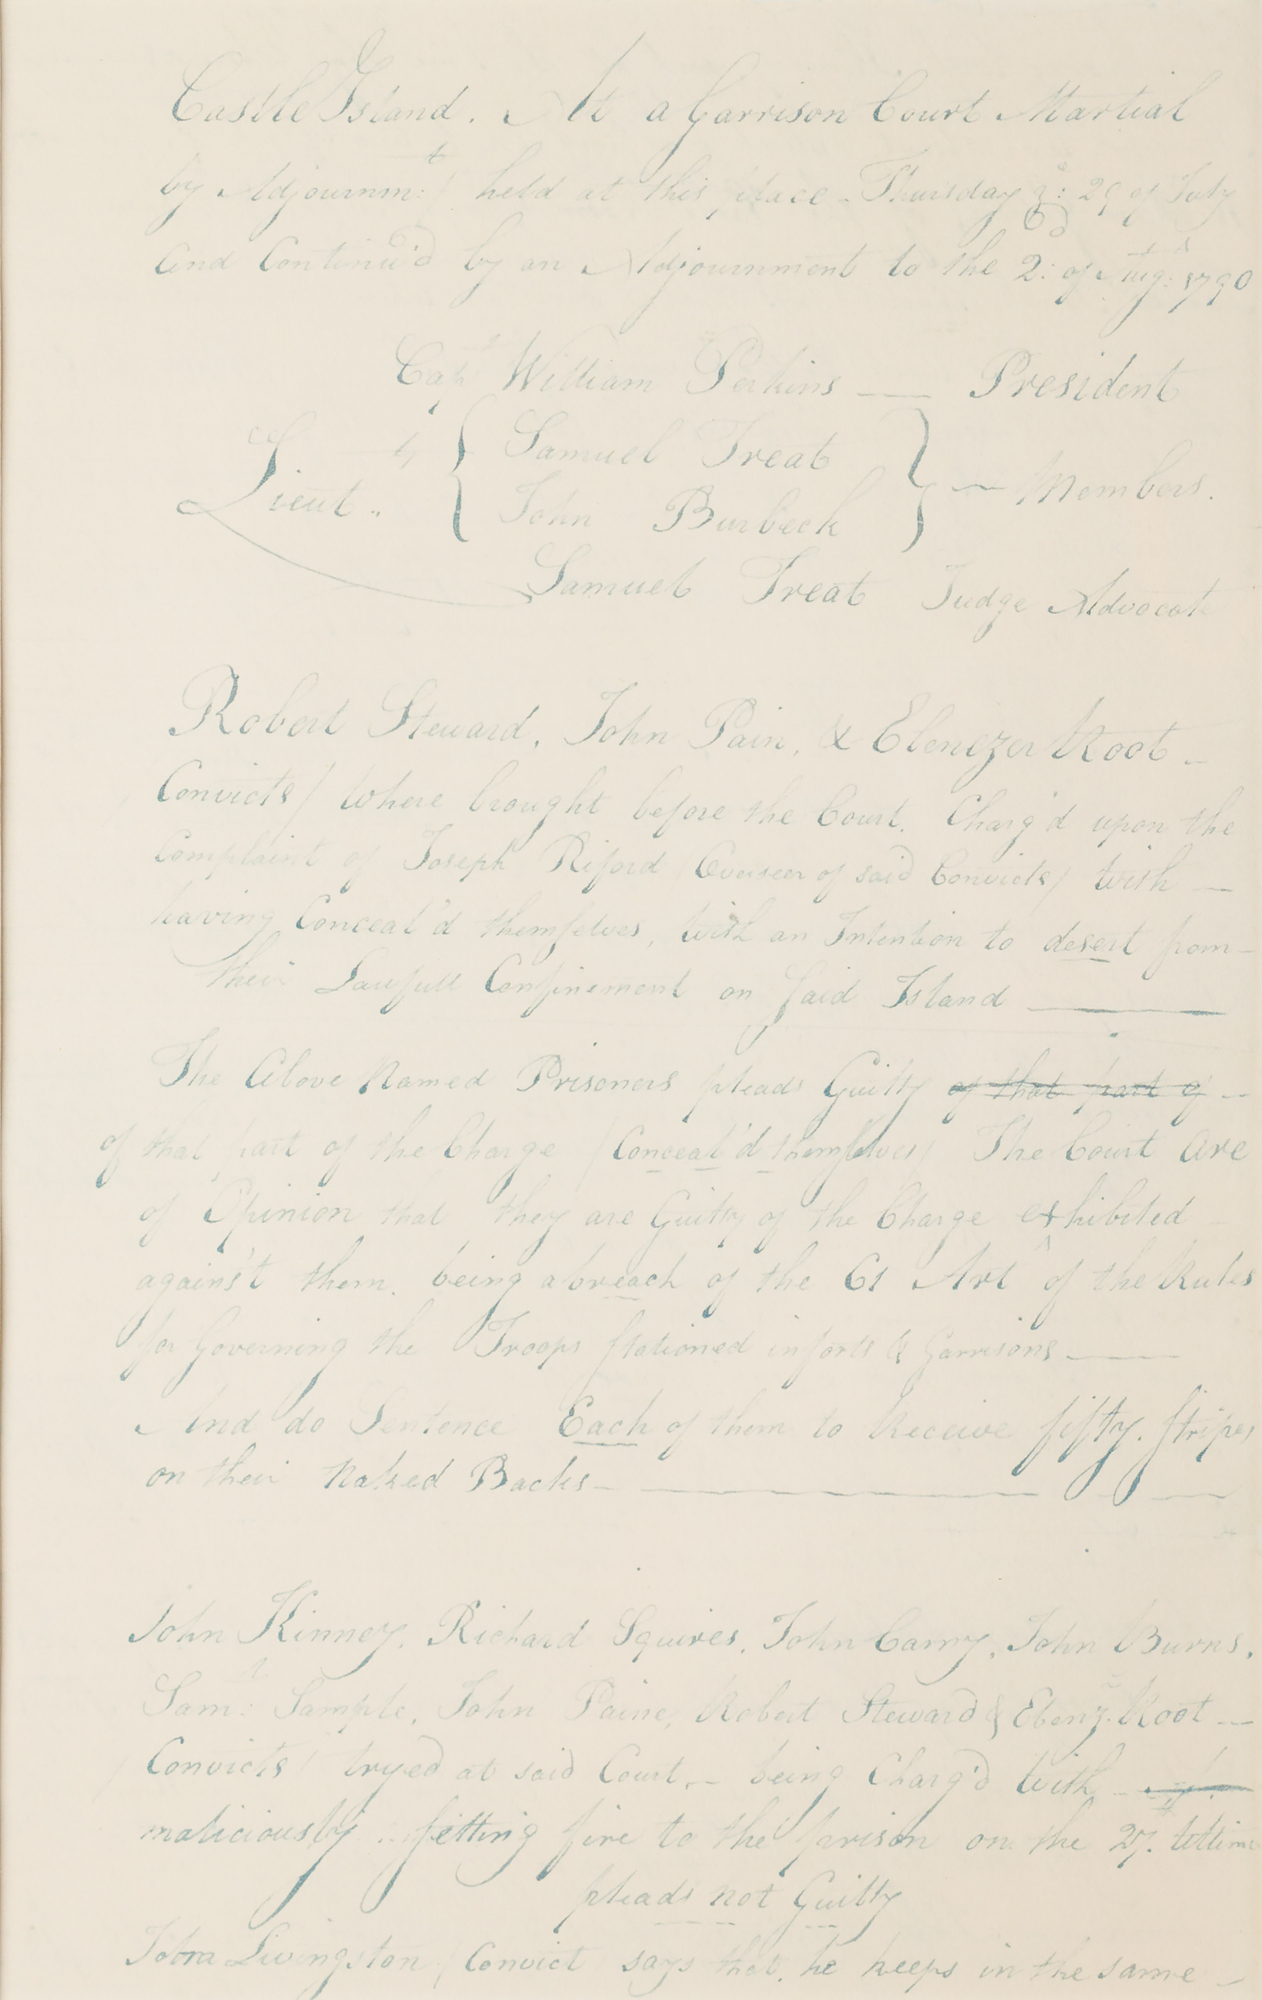 Castle Island. At a Garrison Court Martial
by Adjournm:t/ held at this place Thursday ye: 29 of July
and Continu'd by an Adjournment to the 2:d of Augt: 1790
Capt William Perkins — President
Lieut.. { Samuel Treat
John Burbeck } — Members.
Samuel Treat Judge Advocate
Robert Steward, John Pain, & Ebenezer Root –
Convicts/ Where brought before the Court. Charg'd upon the
Complaint of Joseph Riford (Overseer of said Convicts) with —
having Conceal'd themselves, with an Intention to desert from –
their Lawfull Confinement on Said Island ———
The Above Named Prisoners pleads Guilty of that part of --
of that part of the Charge (Conceal'd themselves) The Court are
of Opinion that they are Guilty of the Charge exhibited –
again'st them. being a breach of the 61 Art of the Rules
for Governing the Troops stationed in forts & Garrisons ——
And do Sentence Each of them to Receive fifty. stripes
on their Naked Backs – ———
John Kinney, Richard Squires, John Carny, John Burns,
Saml: Sample, John Paine, Robert Steward & Ebenz. Root —
Convicts/ tryed at said Court. – being Charg'd with
maliciously setting fire to the prison on the 27th. Ultimo
pleads not Guilty
John Livingston (Convict) says that, he keeps in the same –